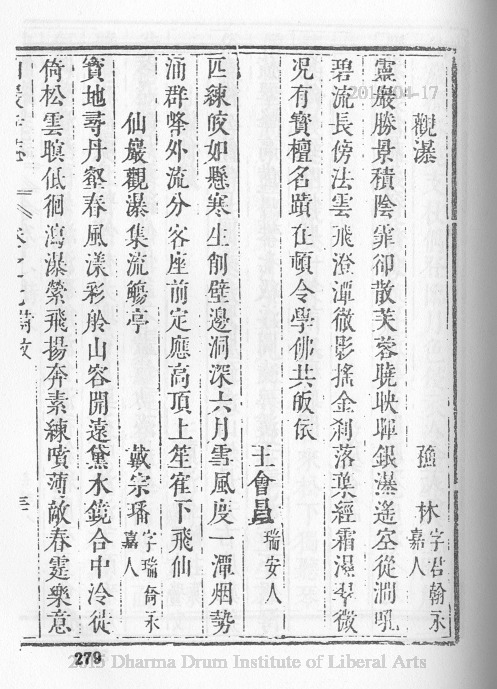 觀瀑 孫林 字君翰永嘉人
靈巖勝景積陰霏卻散芙蓉曉映暉銀瀑遙空從澗吼
碧流長傍法雲飛澄潭微影搖金刹落葉經霜濕翠微
况有寶壇名蹟在頓令學佛共皈依
王會昌 瑞安人
匹練皎如懸寒生削壁邊洞深六月雪風度一潭烟勢
涌群峰外流分客座前定應高頂上笙寉下飛仙
仙巖觀瀑集流觴亭 戴宗璠 字瑞裔永嘉人
寶地尋丹壑春風漾彩舲山客開遠黛水鏡合中泠徙
倚松雲暝低徊瀉瀑縈飛揚奔素練噴薄敵春霆樂意
279
Dharma Drum Institute of Liberal Arts